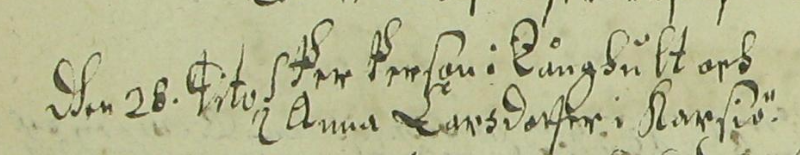 Den 28. Dito Per Person i Långhult och
Anna Larsdotter i Karsiö.